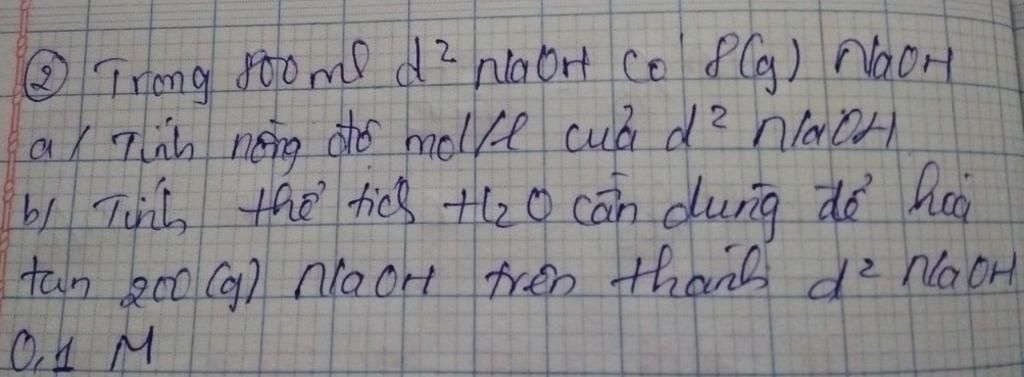 ② Trong 800 ml d² NaOH có 8(g) NaOH
a/ Tính nồng độ mol/l của d² NaOH
b/ Tính thể tích H2O cần dùng để hoà
tan 200(g) NaOH trên thành d² NaOH
0,1 M